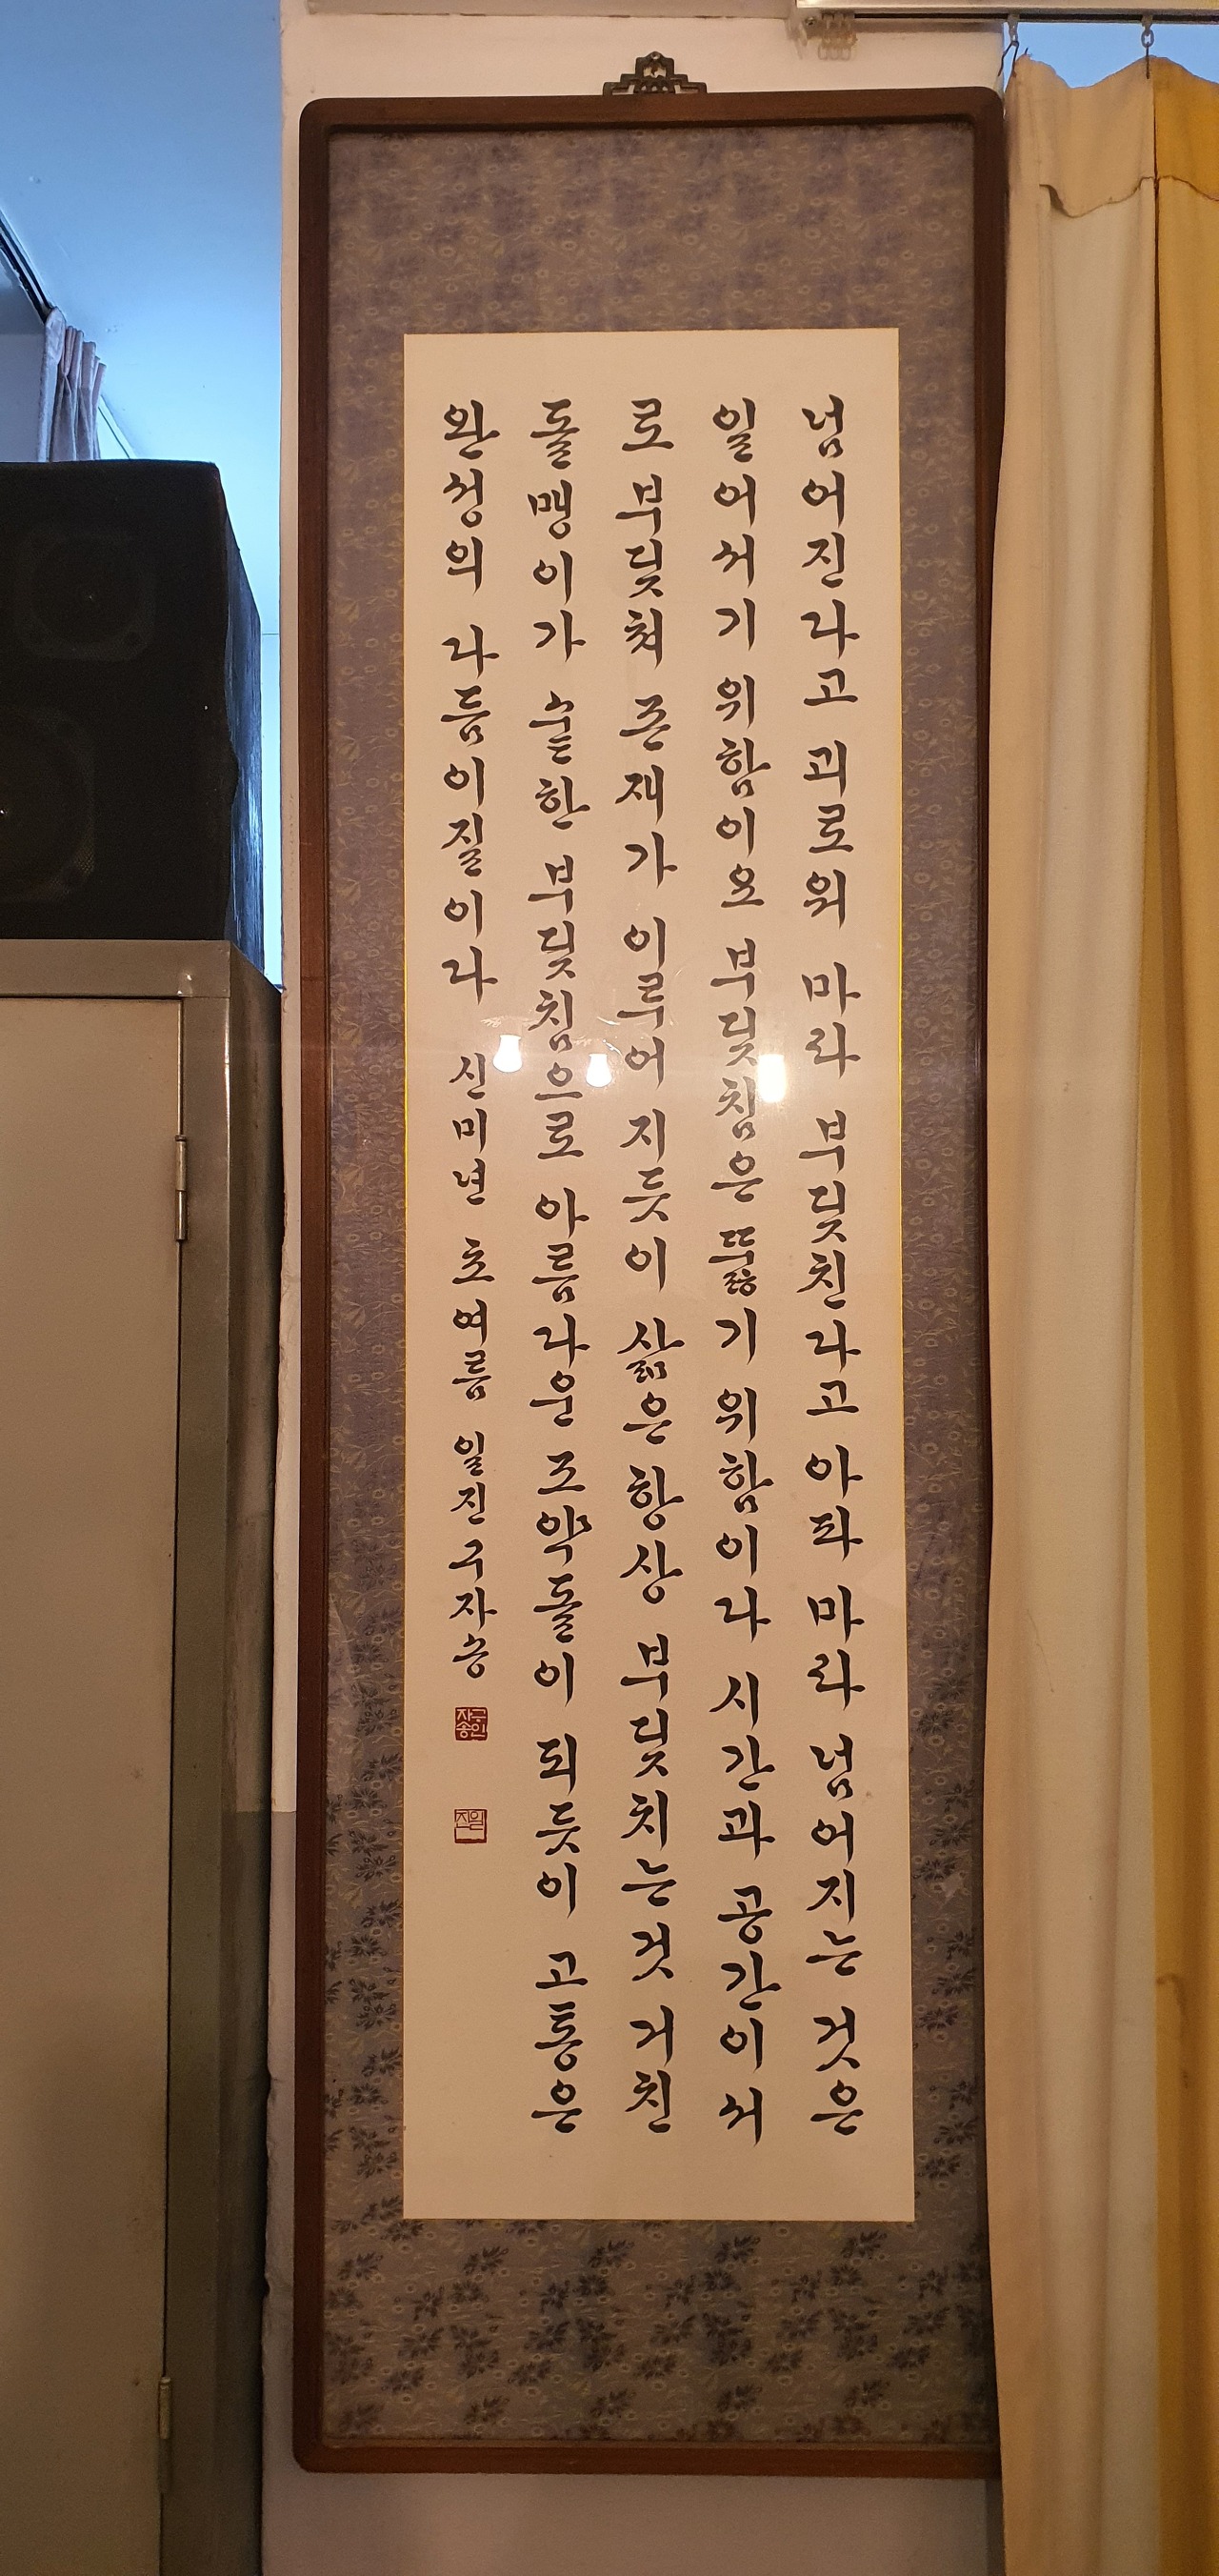 넘어진다고 괴로워 마라 부딪친다고 아파 마라 넘어지는 것은
일어서기 위함이요 부딪침은 뚫기 위함이다 시간과 공간이 서
로 부딪쳐 존재가 이루어 지듯이 삶은 항상 부딪치는것 거친
돌맹이가 숱한 부딪침으로 아름다운 조약돌이 되듯이 고통은
완성의 다듬이질이다 신미년 초여름 일진 구자송
구인자송
일진